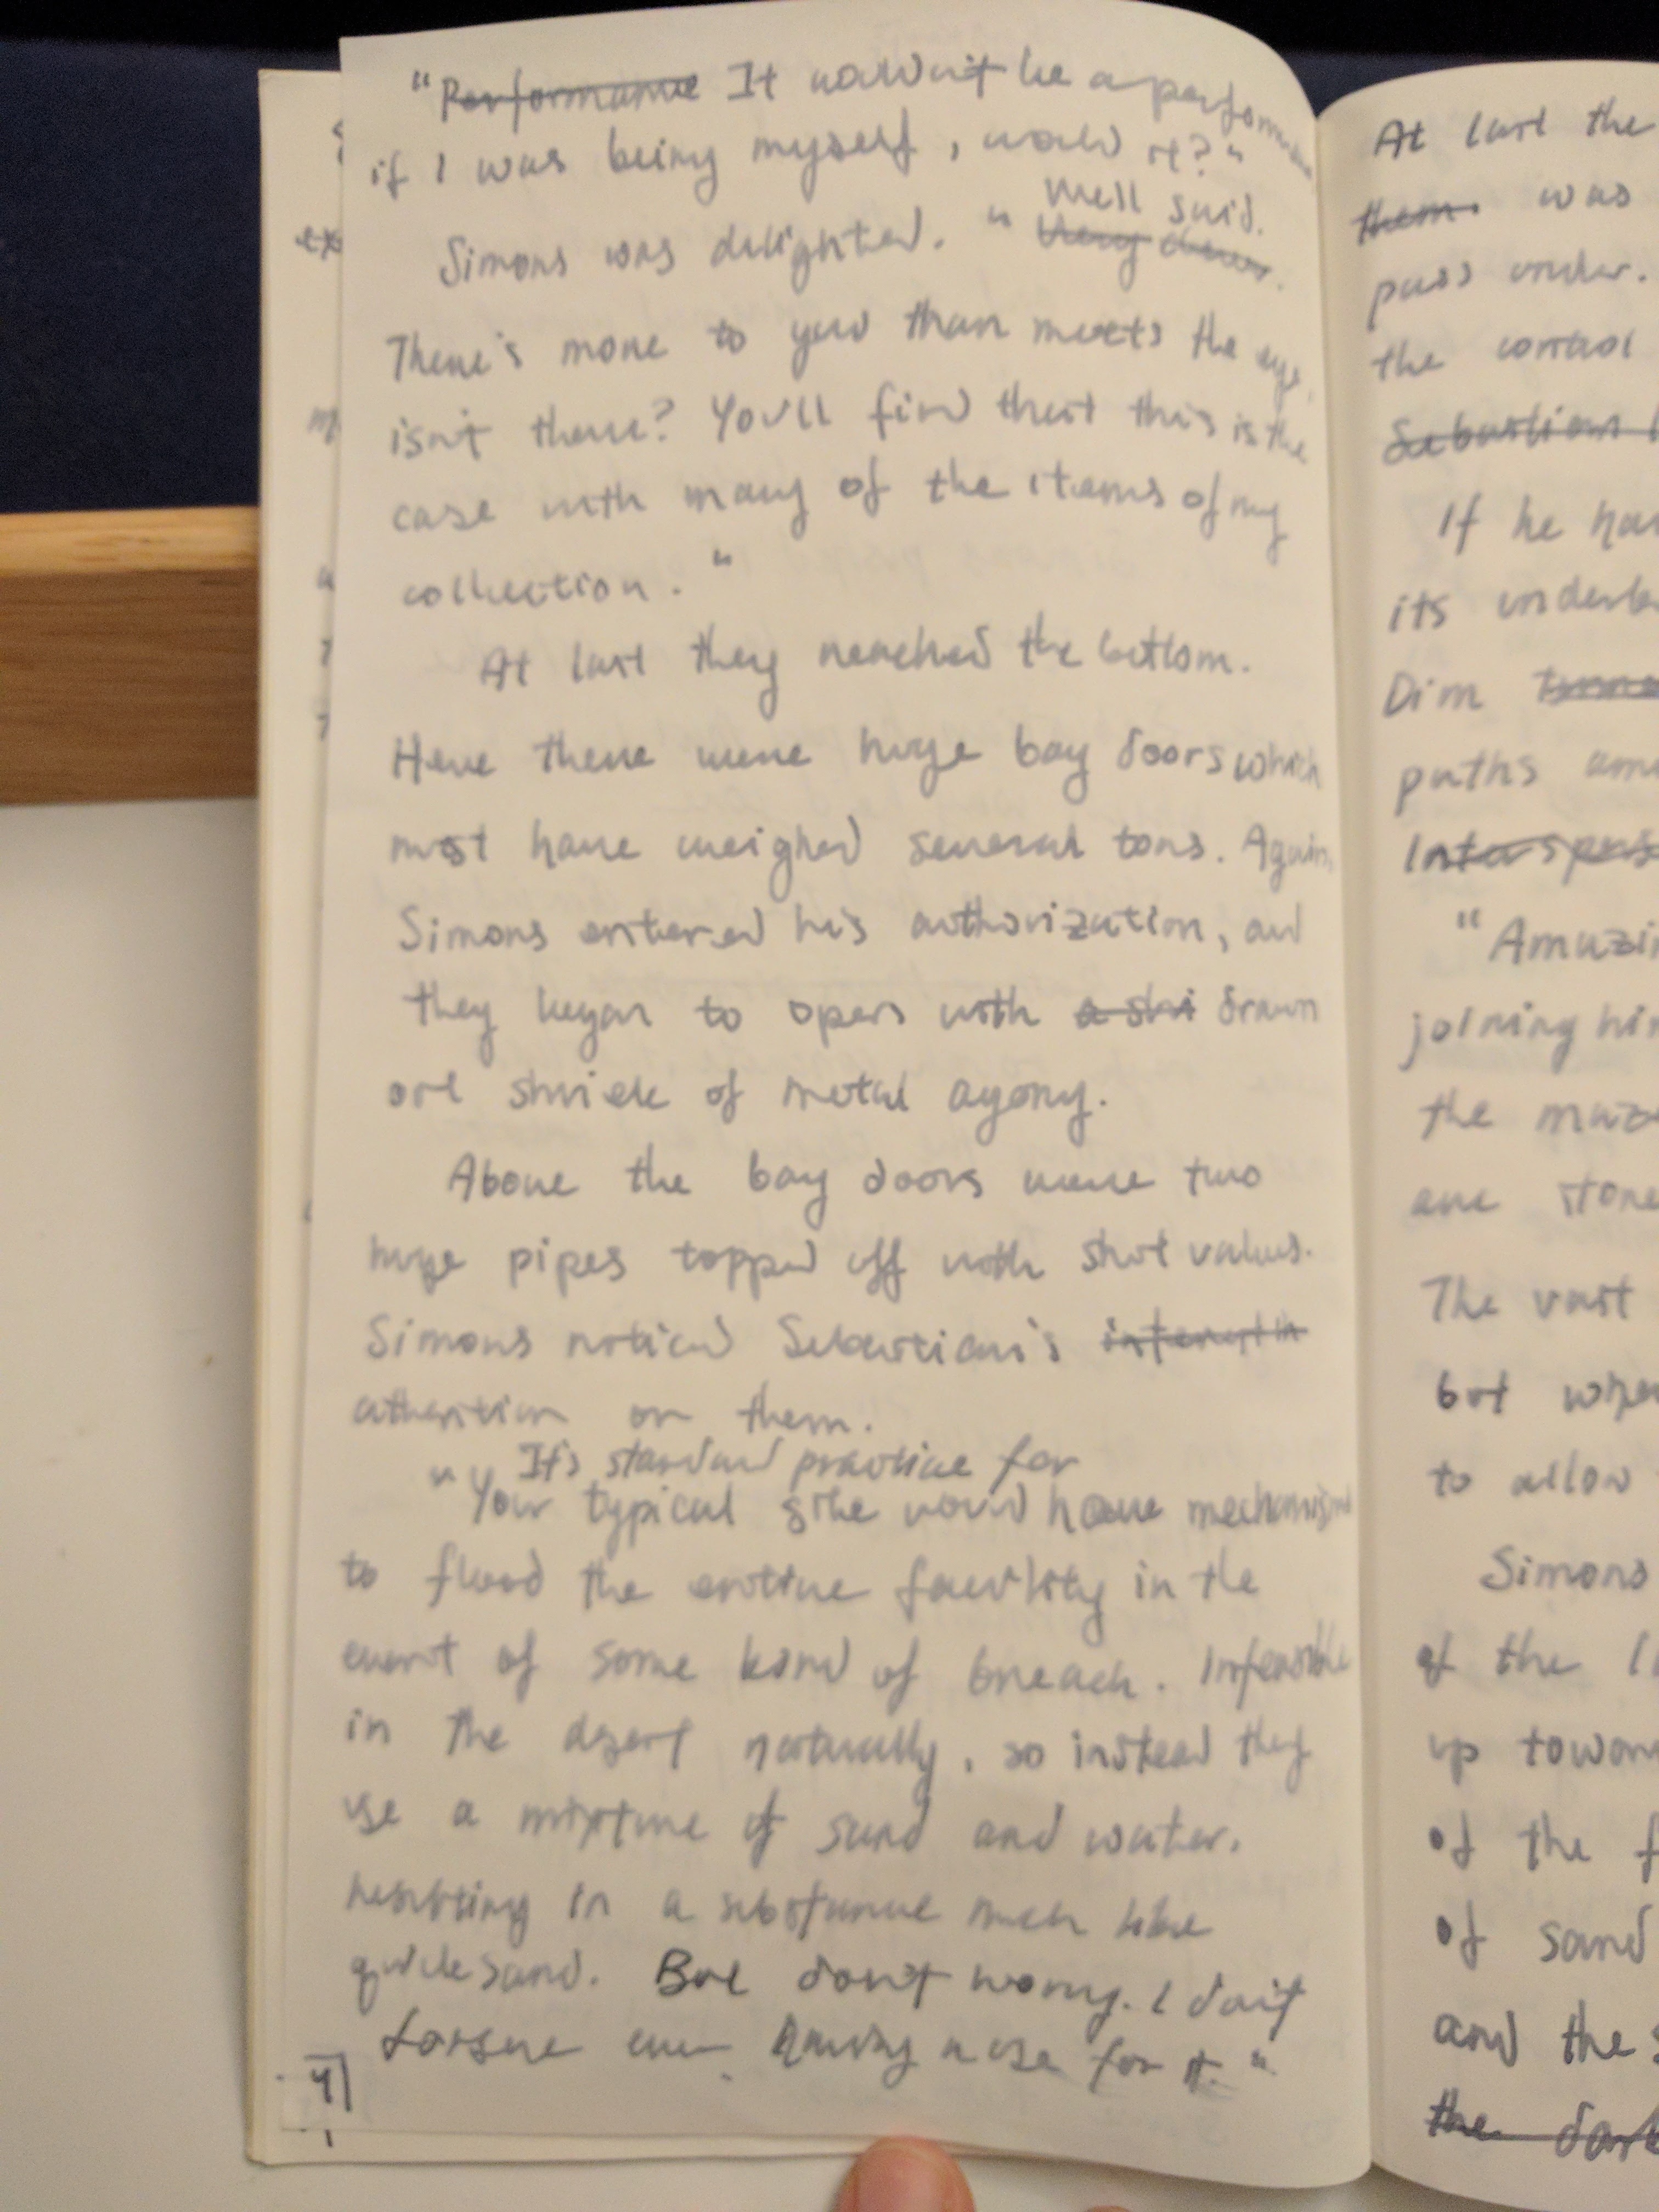 "Performance It wouldn't be a performance
if I was being myself, would it?"
Well said.
Simons was delighted. "Very clever.
There's more to you than meets the eye,
isn't there? You'll find that this is the
case with many of the items of my
collection."
At last they reached the bottom.
Here there were huge bay doors which
must have weighed several tons. Again,
Simons entered his authorization, and
they began to open with a shri drawn
out shriek of metal agony.
Above the bay doors were two
huge pipes topped off with shut valves.
Simons noticed Sebastian's interest in
attention on them.
"It's standard practice for
"Your typical site would have mechanisms
to flood the entire facility in the
event of some kind of breach. Infeasible
in the desert naturally, so instead they
use a mixture of sand and water.
resulting in a substance much like
quicksand. But don't worry. I don't
forsee ever having a use for it."
41
At last the
them. was
pass under.
the control
Sebastian
If he
its
Dim
paths
Intersperse
"Amazin
joining him
the maze
are stone
The vast
but
to allow
Simons
of the
up toward
of the f
of sand
and the s
the dark